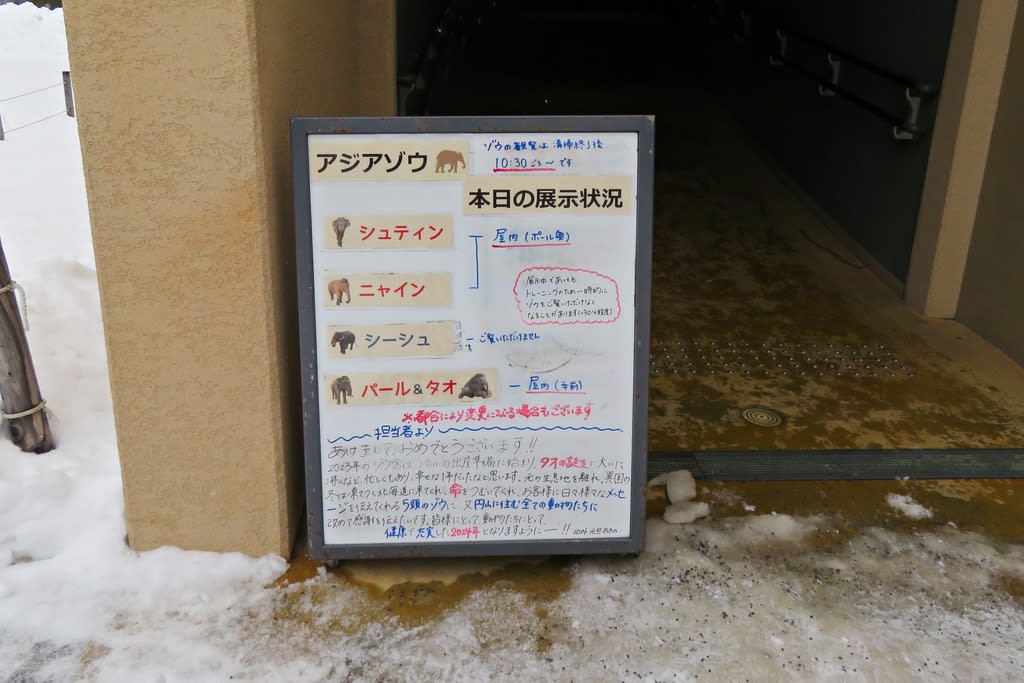 アジアゾウ
ゾウの観覧は 清掃終了後
10:30ごろ〜です
本日の展示状況
シュティン
屋内(プール奥)
ニャイン
展示中であっても
トレーニングのため一時的に
ゾウをご覧いただけなく
なることがあります(〜30分程度)
シーシュ
ご覧いただけません
パール&タオ
屋内(手前)
※都合により変更になる場合もございます
担当者より
あけまして、おめでとうございます!!
2023年のゾウ舎は、パールの出産準備に始まり、タオの誕生に大いに
沸くなど、忙しくもあり、幸せな1年だったなと思います。元の生息地を離れ、異国の
冬は凍てつく北海道に来てくれ、命をつむいでくれ、お客様に日々様々なメッセ
ージを伝えてくれる5頭のゾウに、又円山に住む全ての動物たちに
改めて感謝を伝えたいです。皆様にとって、動物たちにとって、
健康で充実した2024年となりますように―!! 2024.元旦